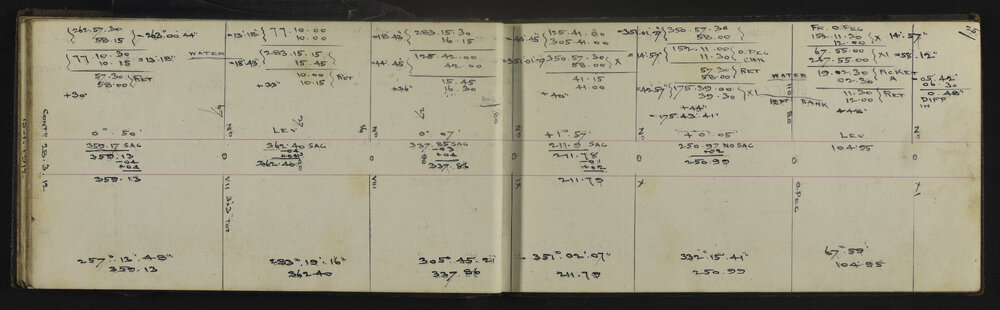 262.57.30
58.15
=263°00'44"
77.10.30
10.15
013'18"
WATER
57.30
58.00
RET
+30"
0° 50'
359.17 SAG
359.13
+04
+04
359.13
257° 13' 48"
359.13
CONTD 20.3.12
=13'18"
77.10.00
10.00
283.15.15
=18'43"
15.45
10.00
10.15
RET
+33"
LEV
362.40 SAG
362.40
VII 3X3 TOT
283° 19' 16"
362.40
=18'43"
283.15.30
16.15
125.42.00
=44'45"
42.00
15.45
16.30
+36"
0° 07'
337.85 SAG
+04
337.86
VIII
305.45.21
337.86
=44'45"
125.41.30
305.41.00
350.57.30
X
=351°01'7"
58.00
41.15
41.00
+40"
+1°57'
211.9 SAG
211.78
+01
+02
211.79
IX
351°02'07"
211.79
=351°01'7"
350.57.30
58.00
152.11.00
O.PEG
=14'57"
11.30
CHK
57.30
RET
58.00
WATER
=42'57"
175.39.00
39.30
XI
+44"
=175.43.41"
SEPT
BANK
+0°05'
250.97 NO SAG
+02
250.99
X
332.15.41"
250.99
FR. O.PEG
152.11.30
X 14'.57"
12.00
67.55.00
247.55.00
XI =58'.12"
19.02.30
PICKET
02.30
A
=05'.42"
06.30
11.30
RET
0.48"
12.00
DIFF
IN
+48"
LEV
104.95
O PEG
67° 59'
104.95
XI
25